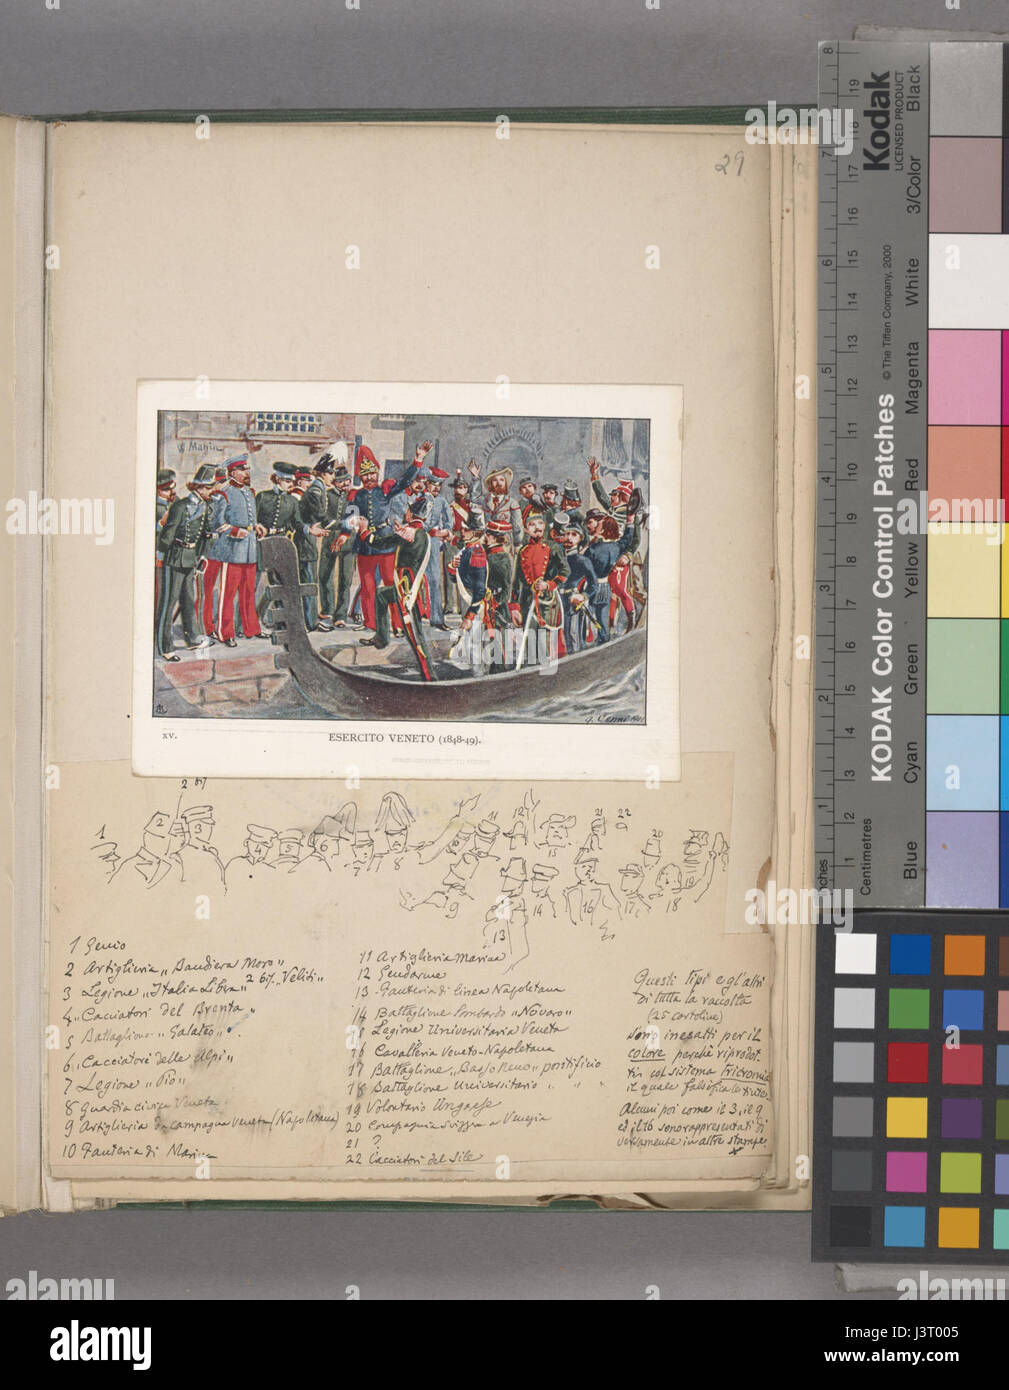 29
W Manin
G. Cenni
XV.
ESERCITO VENETO (1848-49).
1 2 2 bis 3 4 5 6 7 8 9 10 11 12 13 14 15 16 17 18 19 20 21 22
1 Genio
2 Artiglieria „Bandiera Moro"
2 bis „Veliti"
3 Legione „Italia Libera"
4 „Cacciatori del Brenta„
5 Battaglione „Galateo„
6 „Cacciatori delle Alpi„
7 Legione „Pio„
8 Guardia civica Veneta
9 Artiglieria da campagna veneta (Napoletana)
10 Fanteria di Marina
11 Artiglieria Marina
12 Gendarme
13 Fanteria di linea Napoletana
14 Battaglione Lombardo „Novaro"
15 Legione Universitaria Veneta
16 Cavalleria Veneto-Napoletana
17 Battaglione „Basso Reno" pontificio
18 Battaglione Universitario „ „
19 Volontario Ungarese
20 Compagnia Svizzera a Venezia
21 ?
22 Cacciatori del Sile
Questi Tipi e gl'altri
di tutta la raccolta
(25 cartoline)
sono inesatti per il
colore perchè riprodot-
ti col sistema Tricromia
il quale falsifica le tinte.
Alcuni poi come il 3, il 9
ed il 16 sono rappresentati di
versamente in altre stampe
Kodak
LICENSED PRODUCT
KODAK Color Control Patches
© The Tiffen Company, 2000
Centimetres
Blue
Cyan
Green
Yellow
Red
Magenta
White
3/Color
Black
alamy
Image ID: J3T005
www.alamy.com